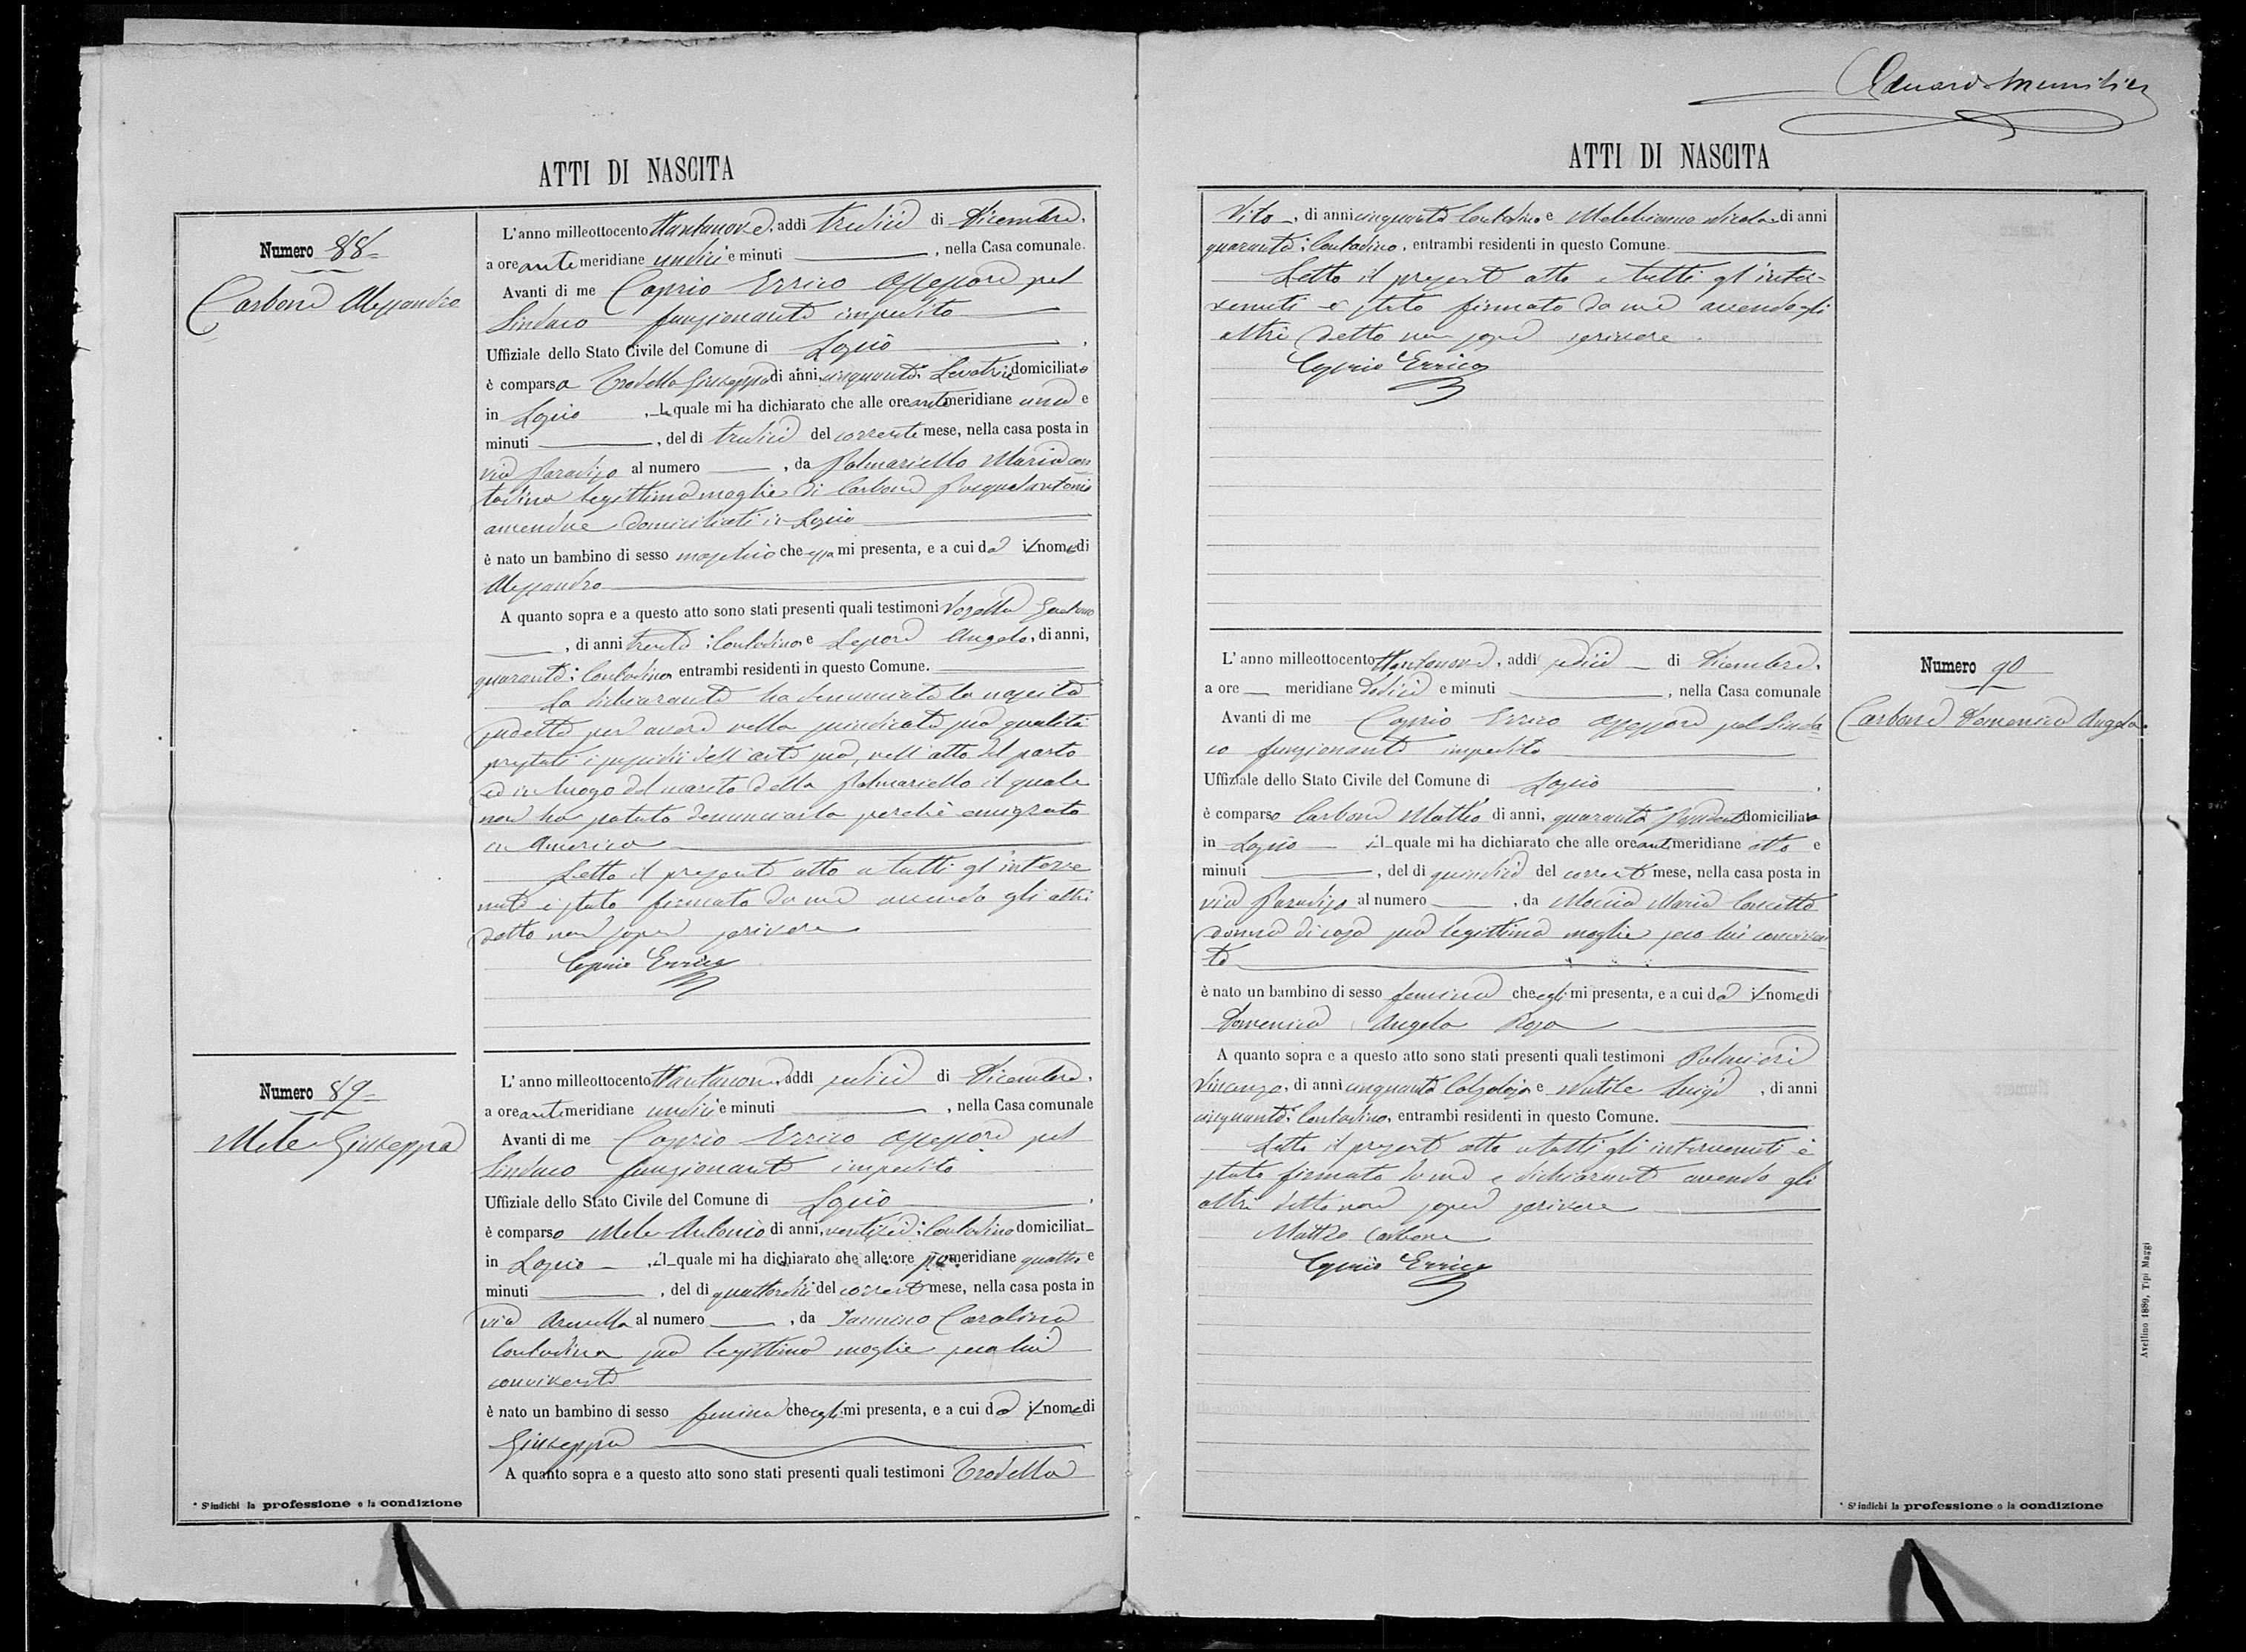 Eduardo
ATTI DI NASCITA
Numero 88
Carbone Alessandro
L'anno milleottocento ottantanove, addi tredici di Dicembre,
a ore antimeridiane undici e minuti ———, nella Casa comunale.
Avanti di me Caprio Errico Assessore pel
Sindaco funzionante impedito
Uffiziale dello Stato Civile del Comune di Lozio,
è comparsa Trodella Giuseppa di anni cinquanta, Levatrice domiciliata
in Lozio, la quale mi ha dichiarato che alle ore antimeridiane una e
minuti ———, del di tredici del corrente mese, nella casa posta in
via Paradiso al numero ———, da Palmariello Maria con
tadina legittima moglie di Carbone Pasqualantonio
amendue domiciliati in Lozio
è nato un bambino di sesso maschio che essa mi presenta, e a cui dà il nome di
Alessandro
A quanto sopra e a questo atto sono stati presenti quali testimoni Gaetano
———, di anni trenta: Contadino e Lepore Angelo, di anni,
quaranta: Contadino, entrambi residenti in questo Comune.
La dichiarante ha denunciato la nascita
sudetta per avere nella suindicata sua qualità
prestati i sussidii dell'arte sua, nell'atto del parto
ed in luogo del marito della Palmariello il quale
non ha potuto denunciarla perchè emigrato
in America
Letto il presente atto a tutti gl'interve
nuti è stato firmato da me avendo gli altri
detto non sapere scrivere
Caprio Errico
Numero 89
Mele Giuseppa
L'anno milleottocento ottantanove, addi sedici di Dicembre,
a ore antimeridiane undici e minuti ———, nella Casa comunale
Avanti di me Caprio Errico Assessore pel
Sindaco funzionante impedito
Uffiziale dello Stato Civile del Comune di Lozio,
è comparso Mele Antonio di anni, ventisei: Contadino domiciliat
in Lozio, il quale mi ha dichiarato che alle ore pomeridiane quattro e
minuti ———, del di quattordici del corrente mese, nella casa posta in
via al numero ———, da Iannino Carolina
Contadina sua legittima moglie seco lui
convivente
è nato un bambino di sesso femina che egli mi presenta, e a cui dà il nome di
Giuseppa
A quanto sopra e a questo atto sono stati presenti quali testimoni Trodella
* S'indichi la professione o la condizione
ATTI DI NASCITA
Vito, di anni cinquanta Contadino e Nicola di anni
quaranta: Contadino, entrambi residenti in questo Comune.
Letto il presente atto a tutti gl'inter-
venuti è stato firmato da me avendo gli
altri detto non sapere scrivere.
Caprio Errico
Numero 90
Carbone Domenica Angela
L'anno milleottocento ottantanove, addi sedici di Dicembre,
a ore — meridiane dodici e minuti ———, nella Casa comunale
Avanti di me Caprio Errico Assessore pel Sinda
co funzionante impedito
Uffiziale dello Stato Civile del Comune di Lozio,
è comparso Carbone Matteo di anni, quaranta domiciliato
in Lozio il quale mi ha dichiarato che alle ore antimeridiane otto e
minuti ———, del di quindici del corrente mese, nella casa posta in
via Paradiso al numero ———, da Moccia Maria Concetta
donna di casa sua legittima moglie seco lui conviven
te
è nato un bambino di sesso femina che egli mi presenta, e a cui dà il nome di
Domenica Angela Rosa
A quanto sopra e a questo atto sono stati presenti quali testimoni
Vincenzo, di anni cinquanta Calzolajo e Luigi, di anni
cinquanta: Contadino, entrambi residenti in questo Comune.
Letto il presente atto a tutti gli intervenuti è
stato firmato da me e dichiarante avendo gli
altri detto non sapere scrivere
Matteo Carbone
Caprio Errico
Avellino 1889, Tipi Maggi
* S'indichi la professione o la condizione